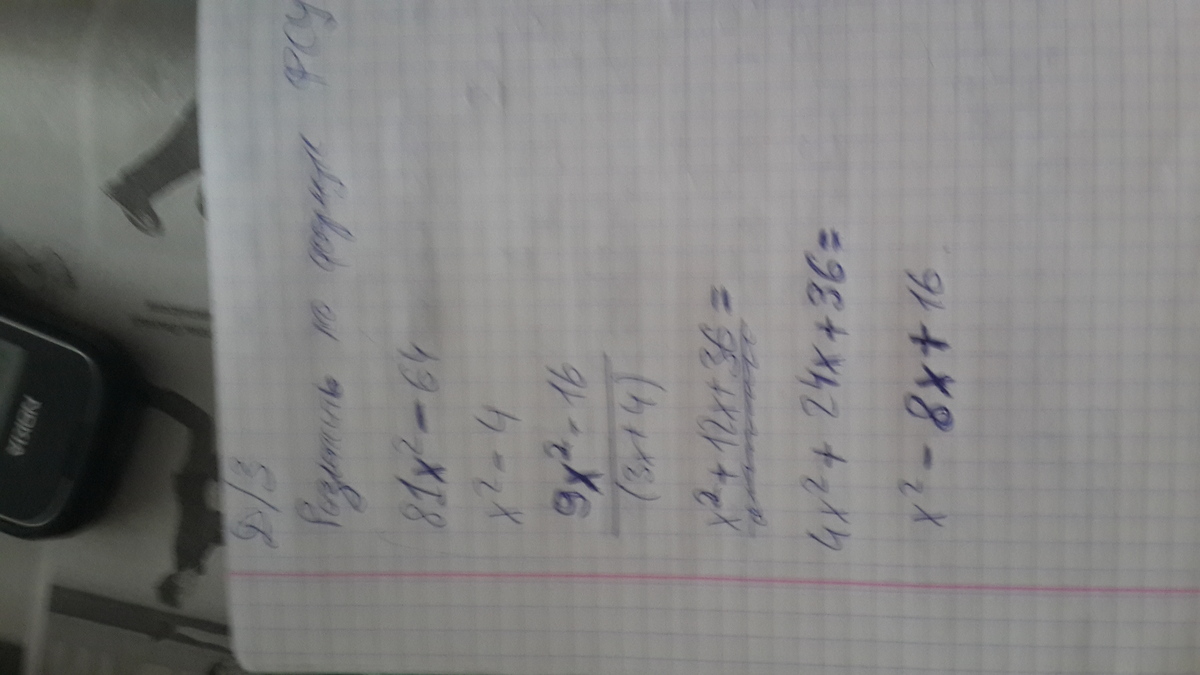 Д/З
Разложить по формуле ФСУ
81x² - 64
x² - 4
9x² - 16
(3x+4)
x² + 12x + 36 =
4x² + 24x + 36 =
x² - 8x + 16